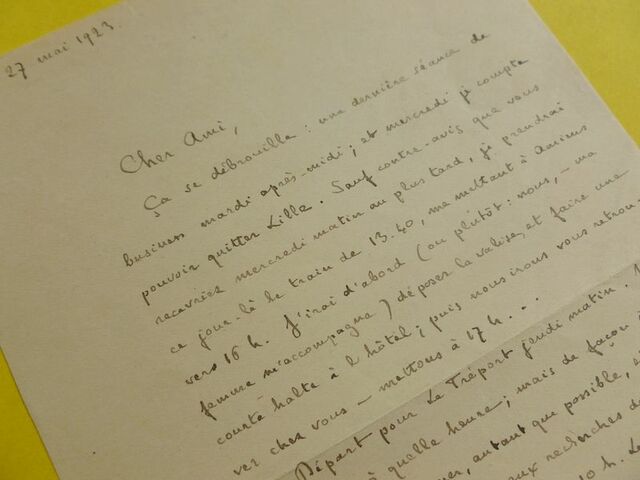 27 mai 1923.
Cher Ami,
Ça se débrouille : une dernière séance de
business mardi après-midi ; et mercredi je compte
pouvoir quitter Lille. Sauf contre-avis que vous
recevriez mercredi matin au plus tard, je prendrai
ce jour-là le train de 13.40, me mettant à Amiens
vers 16 h. J'irai d'abord (ou plutôt : nous, – ma
femme m'accompagne) déposer la valise, et faire une
courte halte à l'hôtel ; puis nous irons vous retrou-
ver chez vous – mettons à 17 h...
Départ pour Le Tréport jeudi matin.
à quelle heure ; mais de façon à
autant que possible,
aux recherches
10 h.